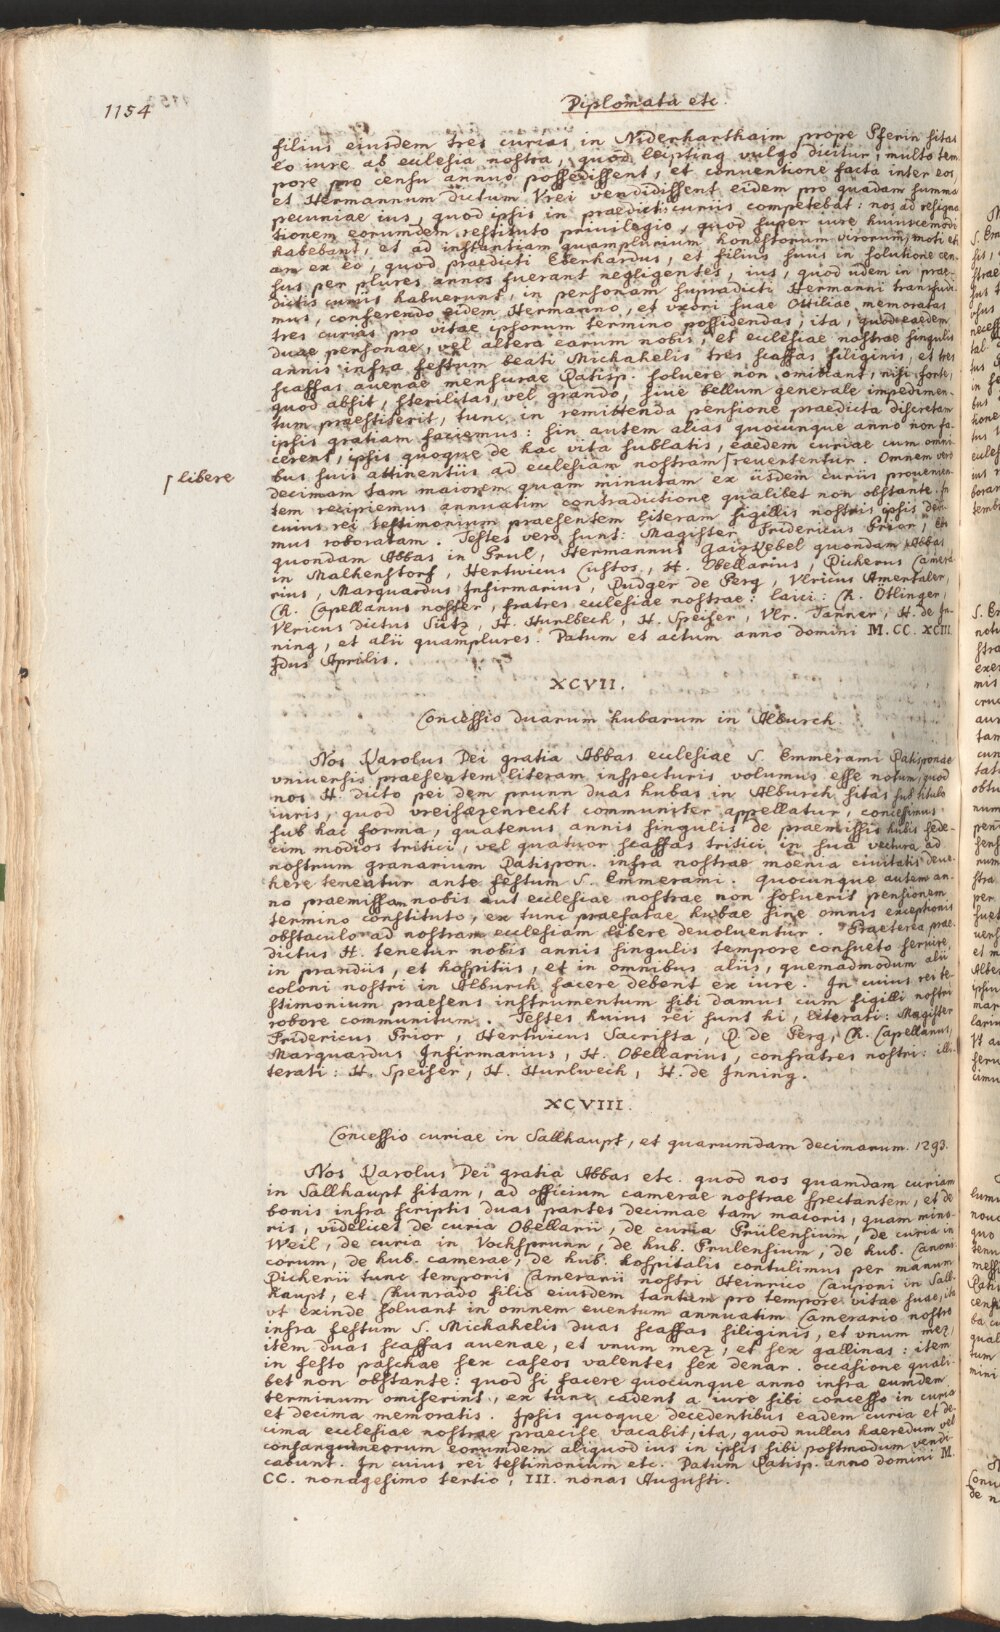 1154
Diplomata etc.
filius eiusdem tres curias in Niderharthaim prope Pferin sitas
eo iure ab ecclesia nostra, quod leipting vulgo dicitur, multo tem-
pore pro censu annuo possedissent, et conventione facta inter eos,
et Hermannum dictum Vrei vendidissent eidem pro quadam summa
pecuniae ius, quod ipsis in praedictis curiis competebat: nos ad resigna-
tionem eorumdem restituto privilegio, quod super iure huiuscemodi
habebant, et ad instantiam quamplurium honestorum virorum, moti eti-
am ex eo, quod praedicti Eberhardus, et filius suus in solutione cen-
sus per plures annos fuerant negligentes, ius, quod iidem in prae-
dictis curiis habuerunt, in personam supradicti Hermanni transfudi-
mus, conferendo eidem Hermanno, et vxori suae Ottiliae memoratas
tres curias pro vitae ipsorum termino possidendas, ita, quod eaedem
duae personae, vel altera earum nobis, et ecclesiae nostrae singulis
annis infra festum beati Michahelis tres scaffas siliginis, et tres
scaffas auenae mensurae Ratisp. soluere non omittant, nisi forte,
quod absit, sterilitas, vel grando, siue bellum generale impedimen-
tum praestiterit, tunc in remittenda pensione praedicta discretam
ipsis gratiam faciemus: sin autem alias quocunque anno non fa-
cerent, ipsis quoque de hac vita sublatis, eaedem curiae cum omni-
bus suis attinentiis ad ecclesiam nostram ⌈ reuertentur. Omnem vero
⌈ libere
decimam tam maiorem quam minutam ex iisdem curiis prouenien-
tem recipiemus annuatim contradictione qualibet non obstante. In
cuius rei testimonium praesentem literam sigillis nostris ipsis dedi-
mus roboratam. Testes vero sunt: Magister Fridericus Prior,
quondam Abbas in Prul, Hermannus quondam Abbas
in Malhenstorf, Hertwicus Custos, H. Obellarius, Rickerus Camera-
rius, Marquardus Infirmarius, Rudger de Perg, Vlricus Amentaler,
Ch. Capellanus noster, fratres ecclesiae nostrae: laici: Ch. Ötlinger,
Vlricus dictus Sütz, H. Hurlbeck, H. Speiser, Vlr. Tanner, H. de In-
ning, et alii quamplures. Datum et actum anno domini M. CC. XCIII.
Idus Aprilis.
XCVII.
Concessio duarum hubarum in Alburch.
Nos Karolus Dei gratia Abbas ecclesiae S. Emmerami Ratisponae
vniuersis praesentem literam inspecturis volumus esse notum, quod
nos H. dicto pei dem prunn duas hubas in Alburch sitas sub titulo
iuris, quod vreisazenrecht communiter appellatur, concessimus
sub hac forma, quatenus annis singulis de praemissis hubis sede-
cim modios tritici, vel quatuor scaffas tritici in sua vectura ad
nostrum granarium Ratispon. infra nostrae moenia ciuitatis deue-
here teneatur ante festum S. Emmerami. Quocunque autem an-
no praemissam nobis aut ecclesiae nostrae non soluerit pensionem
termino constituto, ex tunc praefatae hubae sine omnis exceptionis
obstaculo ad nostram ecclesiam libere deuoluentur. Praeterea prae-
dictus H. tenetur nobis annis singulis tempore consueto seruire
in prandiis, et hospitiis, et in omnibus aliis, quemadmodum alii
coloni nostri in Alburch facere debent ex iure. In cuius rei te-
stimonium praesens instrumentum sibi damus cum sigilli nostri
robore communitum. Testes huius rei sunt hi, literati: Magister
Fridericus Prior, Hertwicus Sacrista, R. de Perg, Ch. Capellanus,
Marquardus Infirmarius, H. Obellarius, confratres nostri: illi-
terati: H. Speiser, H. Hurlweck, H. de Inning.
XCVIII.
Concessio curiae in Sallhaupt, et quarumdam decimarum. 1293.
Nos Karolus Dei gratia Abbas etc. quod nos quamdam curiam
in Sallhaupt sitam, ad officium camerae nostrae spectantem, et de
bonis infra scriptis duas partes decimae tam maioris, quam mino-
ris, videlicet de curia Obellarii, de curia Prülensium, de curia in
Weil, de curia in Vochsprunn, de hub. Prulensium, de hub. Canoni-
corum, de hub. camerae, de hub. hospitalis contulimus per manum
Rickerii tunc temporis Camerarii nostri Heinrico Cauponi in Sall-
haupt, et Chunrado filio eiusdem tantum pro tempore vitae suae, ita
vt exinde soluant in omnem euentum annuatim Camerario nostro
infra festum S. Michahelis duas scaffas siliginis, et vnum mez,
item duas scaffas auenae, et vnum mez, et sex gallinas: item
in festo paschae sex caseos valentes sex denar. occasione quali-
bet non obstante: quod si facere quocunque anno infra eumdem
terminum omiserint, ex tunc cadent a iure sibi concesso in curia
et decima memoratis. Ipsis quoque decedentibus eadem curia et de-
cima ecclesiae nostrae praecise vacabit, ita, quod nullus haeredum vel
consanguineorum eorumdem aliquod ius in ipsis sibi postmodum vendi-
cabunt. In cuius rei testimonium etc. Datum Ratisp. anno domini M.
CC. nonagesimo tertio, III. nonas Augusti.